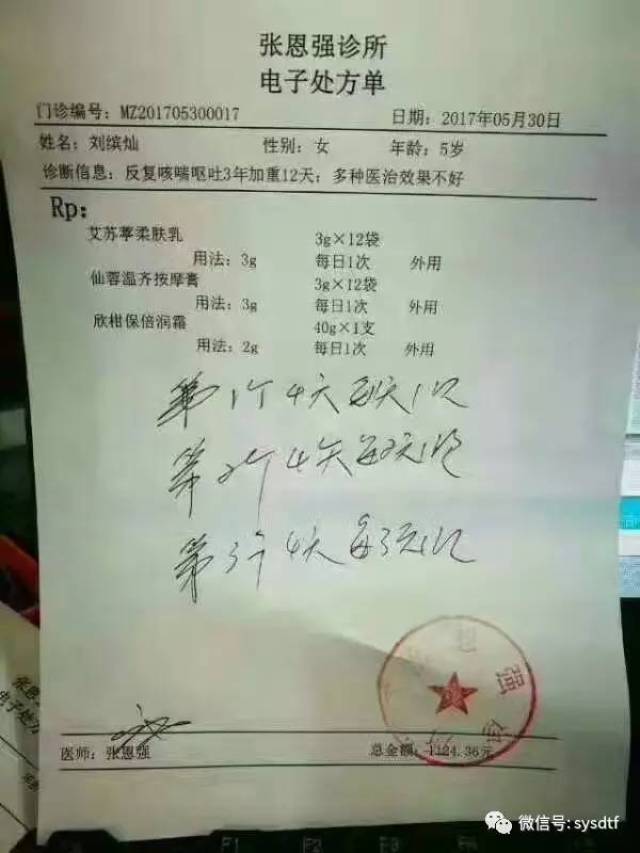 张恩强诊所
电子处方单
门诊编号: MZ201705300017 日期: 2017年05月30日
姓名: 刘缤灿 性别: 女 年龄: 5岁
诊断信息: 反复咳喘呕吐3年加重12天; 多种医治效果不好
Rp:
艾苏葶柔肤乳 3g×12袋
用法: 3g 每日1次 外用
仙蓉温齐按摩膏 3g×12袋
用法: 3g 每日1次 外用
欣柑保倍润霜 40g×1支
用法: 2g 每日1次 外用
第1个4天每天1次
第2个4天每2天1次
第3个4天每3天1次
强
医师: 张恩强 总金额: 1124.36元
电子处方
微信号: sysdtf